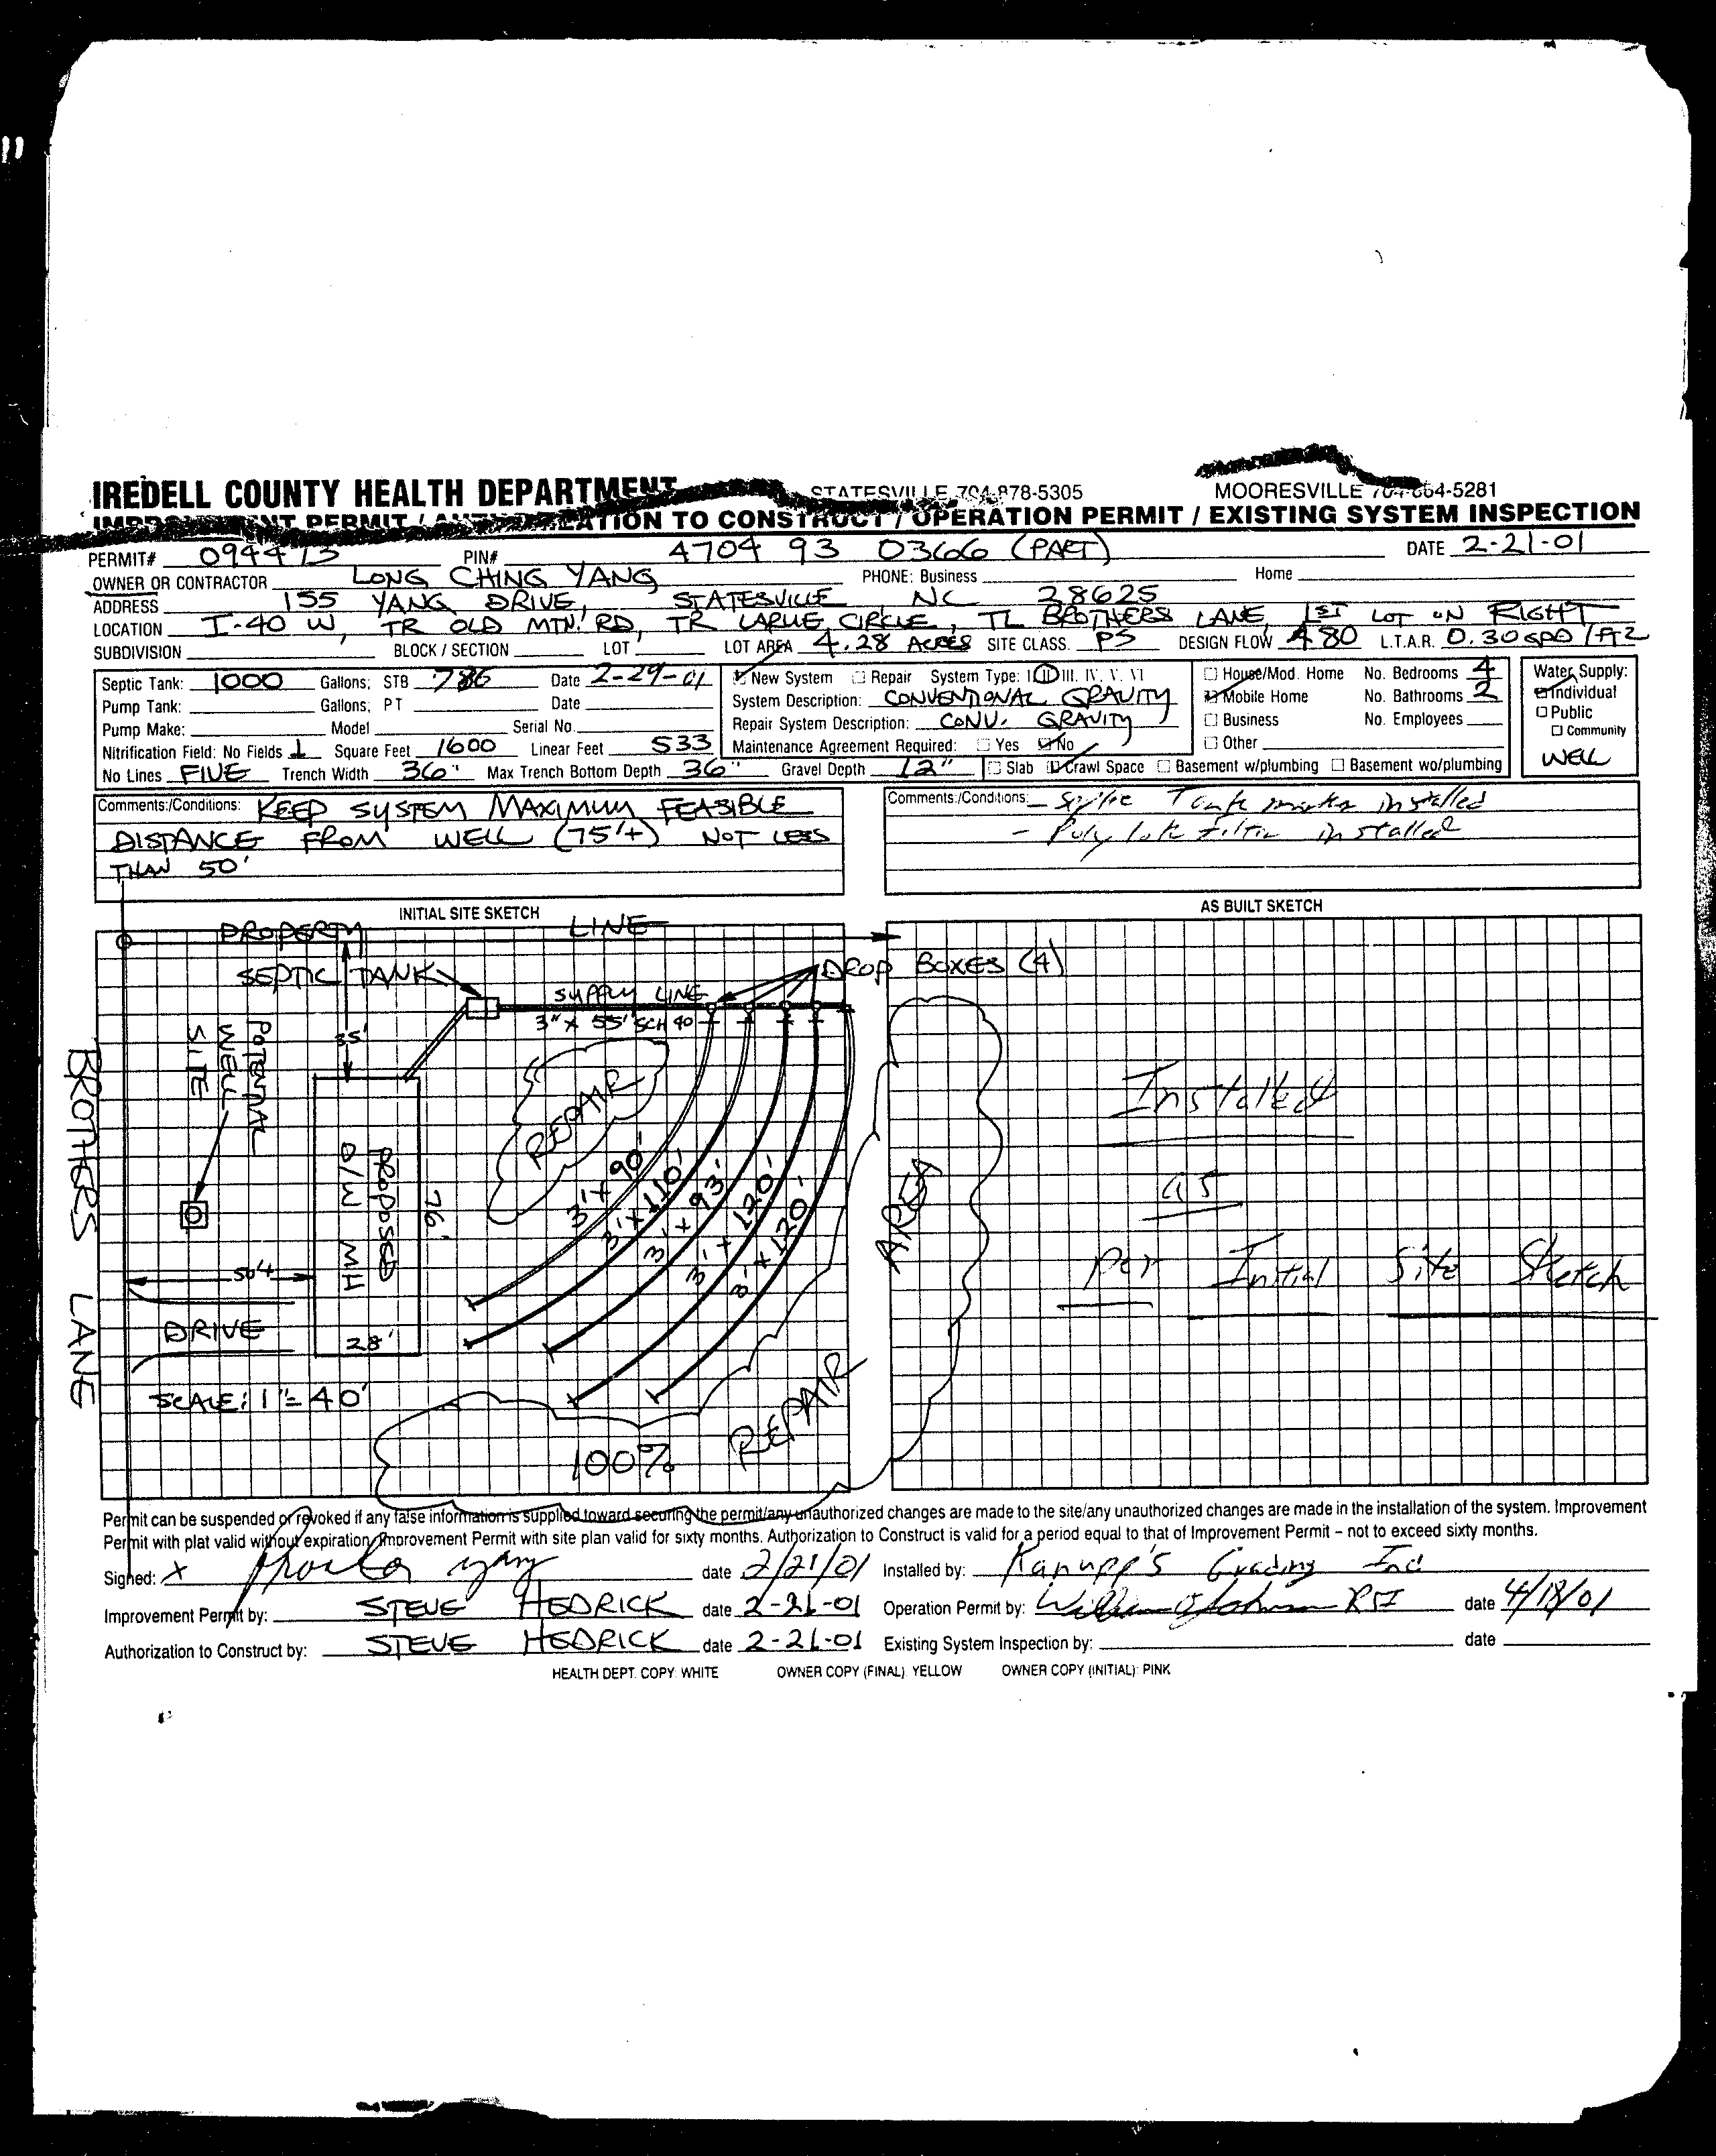 IREDELL COUNTY HEALTH DEPARTMENT STATESVILLE 704-878-5305 MOORESVILLE 704-664-5281
PERMIT / CONSTRUCT / OPERATION PERMIT / EXISTING SYSTEM INSPECTION
PERMIT# PIN# 4704 93 0366 (PART) DATE 2-21-01
OWNER OR CONTRACTOR LONG CHING YANG PHONE: Business Home
ADDRESS 155 YANG DRIVE, STATESVILLE, NC 28625
LOCATION I-40 W, TR OLD MTN. RD, TR LARUE CIRCLE, TL BROTHERS LANE, 1ST LOT ON RIGHT
SUBDIVISION BLOCK / SECTION LOT LOT AREA 4.28 ACRES SITE CLASS. PS DESIGN FLOW 480 L.T.A.R. 0.30 GPD/FT2
Septic Tank: 1000 Gallons; STB 786 Date 2-29-01
Pump Tank: Gallons; PT Date
Pump Make: Model Serial No.
Nitrification Field: No Fields 1 Square Feet 1600 Linear Feet 533
No Lines FIVE Trench Width 36" Max Trench Bottom Depth 36" Gravel Depth 12"
New System Repair System Type: I II III. IV. V. VI
System Description: CONVENTIONAL GRAVITY
Repair System Description: CONV. GRAVITY
Maintenance Agreement Required: Yes No
Slab Crawl Space Basement w/plumbing Basement wo/plumbing
House/Mod. Home No. Bedrooms 4
Mobile Home No. Bathrooms 2
Business No. Employees
Other
Water Supply:
Individual
Public
Community
WELL
Comments:/Conditions: KEEP SYSTEM MAXIMUM FEASIBLE
DISTANCE FROM WELL (75'+) NOT LESS
THAN 50'
Comments:/Conditions: - Septic Tank marker installed
- Polylok filter installed
INITIAL SITE SKETCH
AS BUILT SKETCH
PROPERTY LINE
SEPTIC TANK
DROP BOXES (4)
SUPPLY LINE
3" x 55' SCH 40
35'
POTENTIAL
WELL
SITE
BROTHERS LANE
REPAIR
PROPOSED
D/W MH
76'
28'
50'+
DRIVE
3' x 90'
3' x 110'
3' x 93'
3' x 120'
3' x 120'
SCALE: 1"= 40'
100% REPAIR AREA
Installed
as
per Initial Site Sketch
Permit can be suspended or revoked if any false information is supplied toward securing the permit/any unauthorized changes are made to the site/any unauthorized changes are made in the installation of the system. Improvement
Permit with plat valid without expiration/Improvement Permit with site plan valid for sixty months. Authorization to Construct is valid for a period equal to that of Improvement Permit – not to exceed sixty months.
Signed: x yang date 2/21/01 Installed by: Kanupp's Grading Inc
Improvement Permit by: STEVE HEDRICK date 2-21-01 Operation Permit by: date 4/18/01
Authorization to Construct by: STEVE HEDRICK date 2-21-01 Existing System Inspection by: date
HEALTH DEPT. COPY: WHITE OWNER COPY (FINAL): YELLOW OWNER COPY (INITIAL): PINK